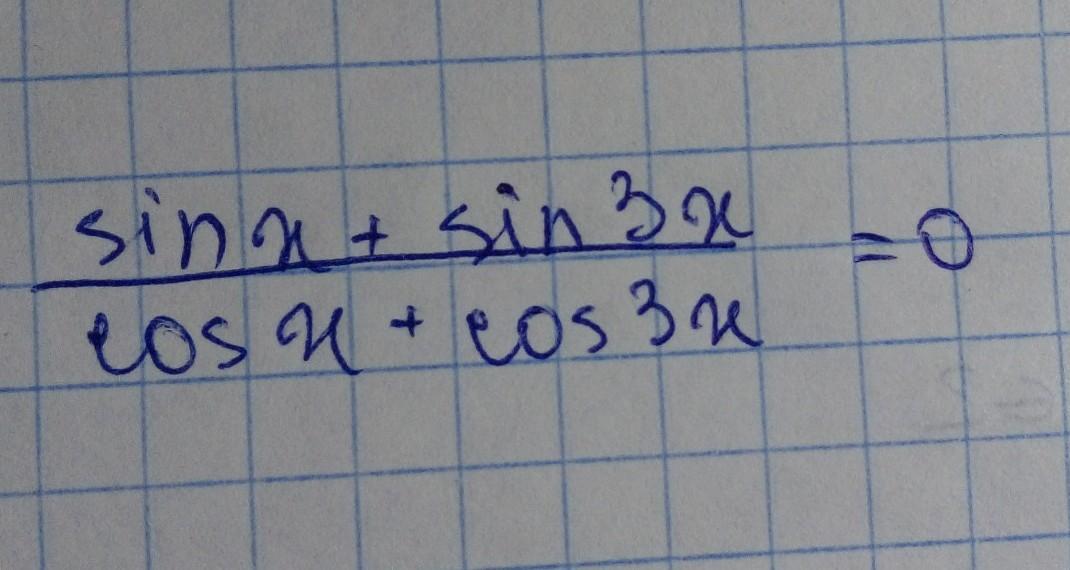 sin x + sin 3x
= 0
cos x + cos 3x